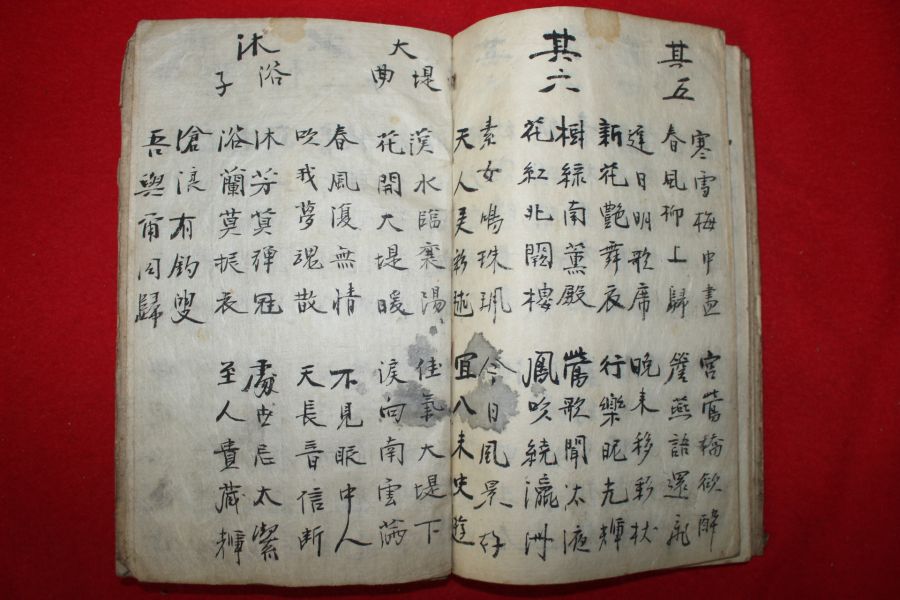 其五
寒雪梅中盡 宮鶯嬌欲醉
春風柳上歸 簷燕語還飛
遲日明歌席 晚来移彩仗
新花艷舞衣 行樂昵光輝
其六
樹綠南薰殿 鶯歌聞太液
花紅北闕樓 鳳吹繞瀛洲
素女鳴珠珮 今日風景好
天人弄彩毬 宜入未央遊
大堤曲
漢水臨襄陽 佳氣大堤下
花開大堤暖 淚向南雲滿
春風復無情 不見眼中人
吹我夢魂散 天長音信斷
沐浴子
沐芳莫彈冠 處世忌太潔
浴蘭莫振衣 至人貴藏輝
滄浪有釣叟
吾與爾同歸